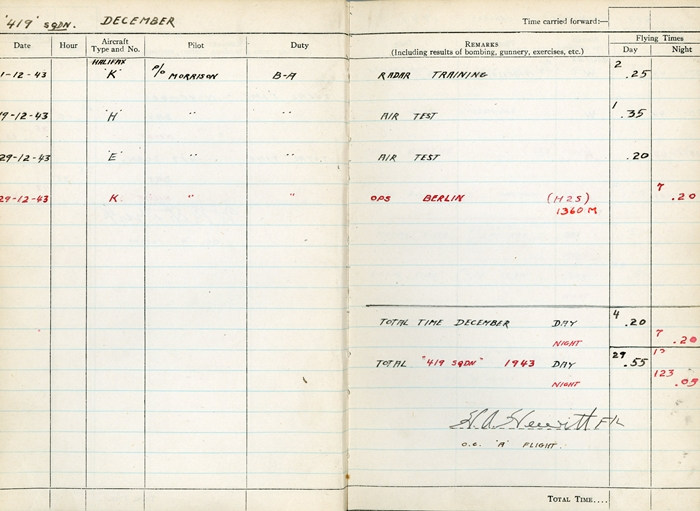 '419' SQDN. DECEMBER
Time carried forward:—
Date Hour Aircraft Type and No. Pilot Duty REMARKS (Including results of bombing, gunnery, exercises, etc.) Flying Times
Day Night
1-12-43 HALIFAX 'K' P/O MORRISON B-A RADAR TRAINING 2 .25
9-12-43 'H' " " AIR TEST 1 .35
29-12-43 'E' " " AIR TEST .20
29-12-43 K " " OPS BERLIN (H2S) 7 .20
1360 M
TOTAL TIME DECEMBER DAY 4 .20
NIGHT 7 .20
TOTAL "419 SQDN" 1943 DAY 29 .55
NIGHT 123 .05
H A Hewitt F/L
O.C. 'A' FLIGHT.
TOTAL TIME....